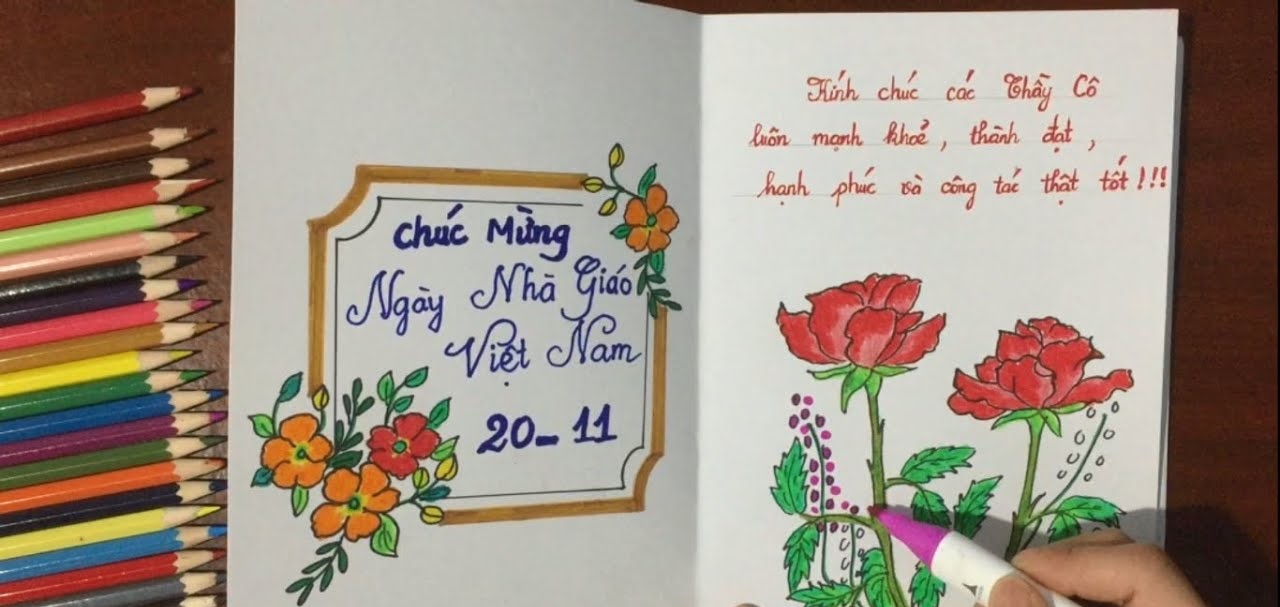 Chúc Mừng
Ngày Nhà Giáo
Việt Nam
20-11
Kính chúc các Thầy Cô
luôn mạnh khoẻ, thành đạt,
hạnh phúc và công tác thật tốt!!!